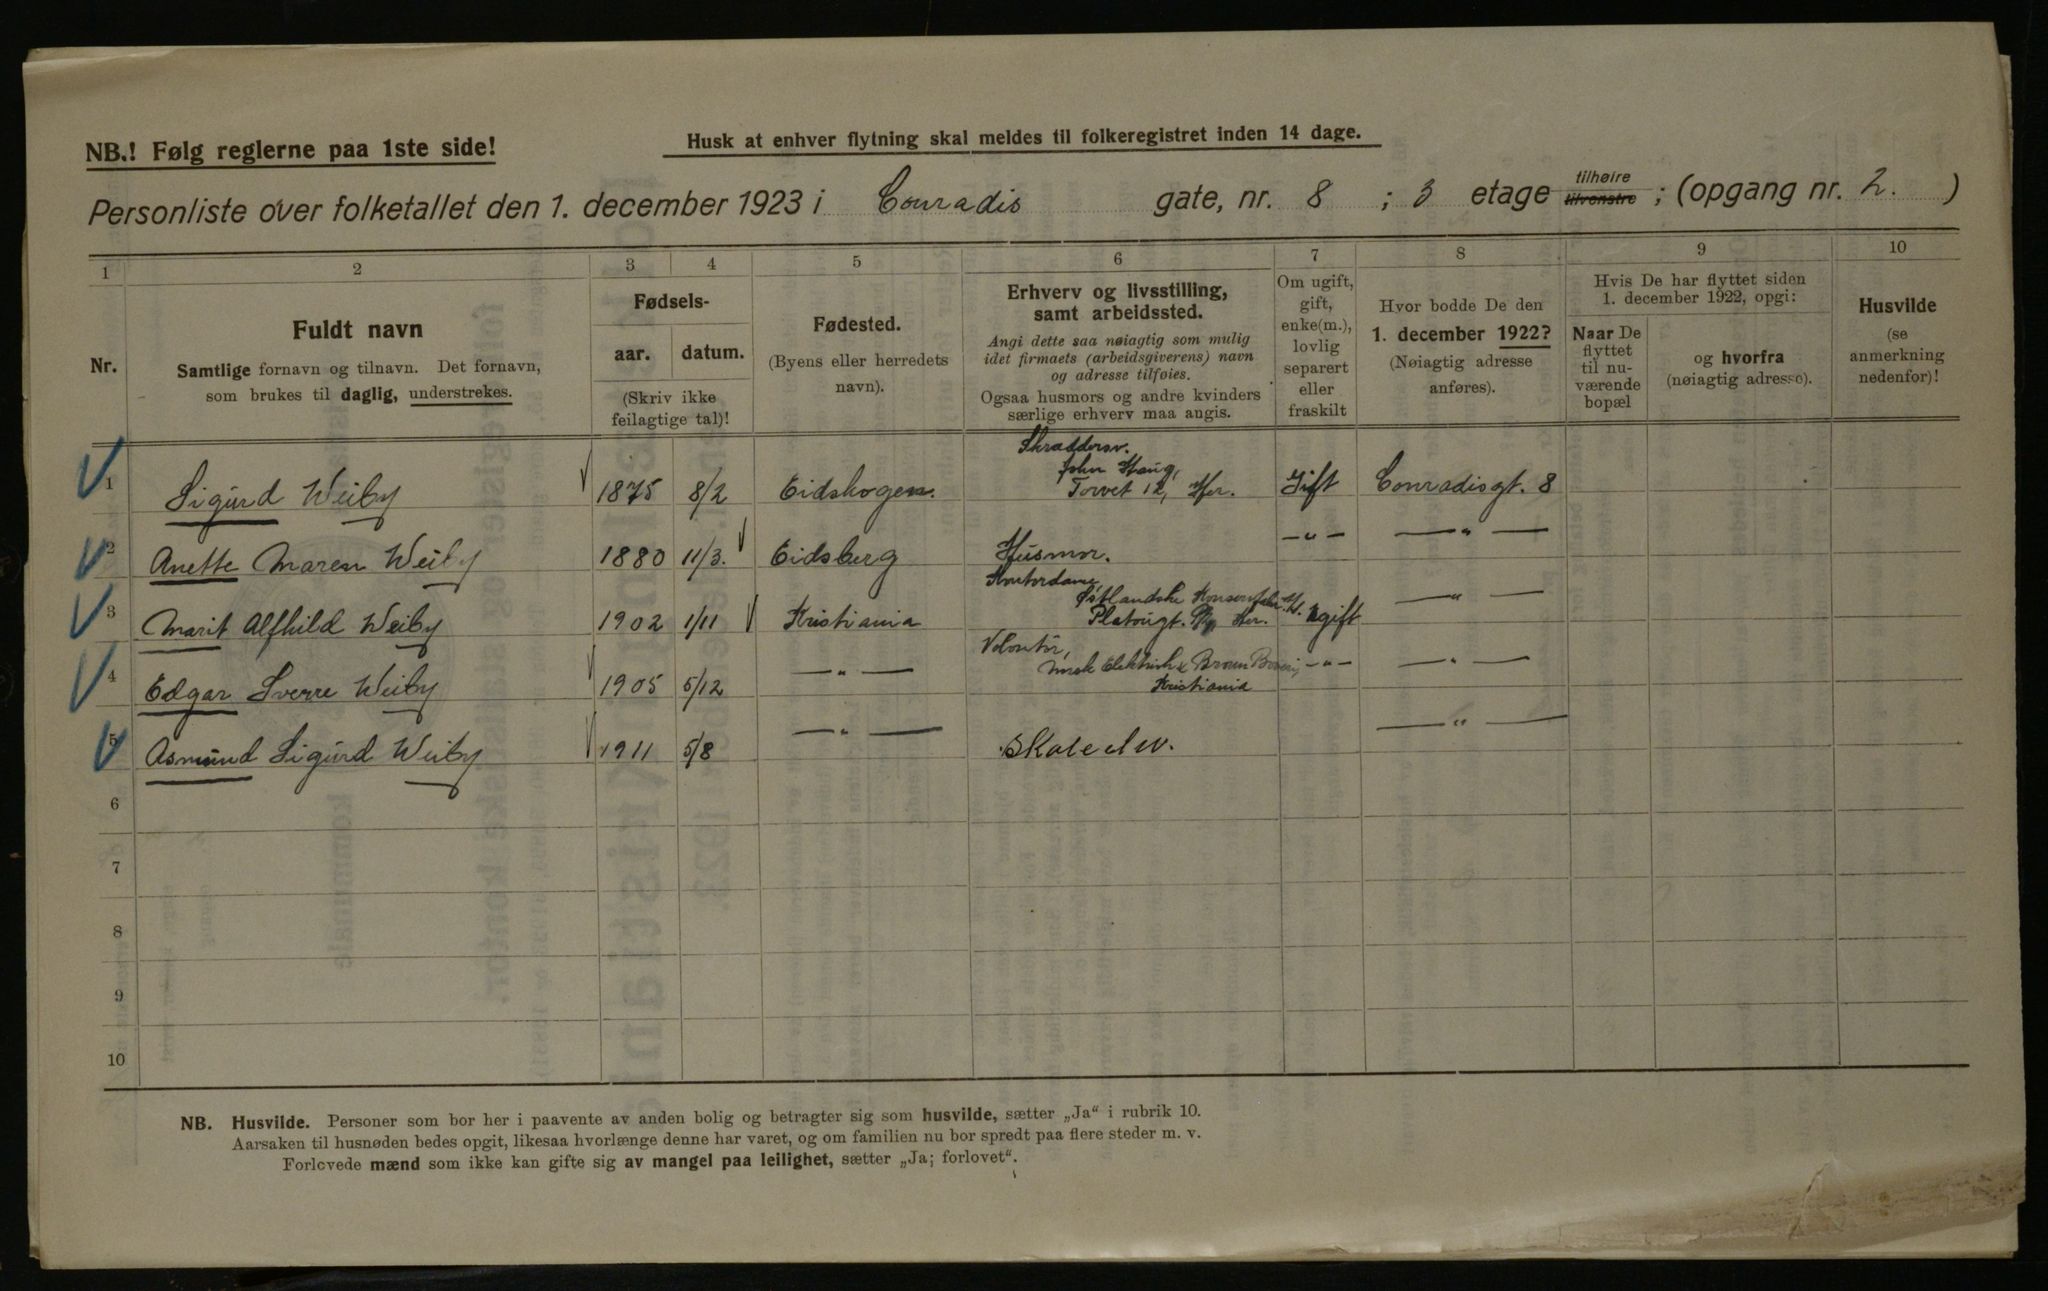 NB.! Følg reglerne paa 1ste side!
Husk at enhver flytning skal meldes til folkeregistret inden 14 dage.
Personliste over folketallet den 1. december 1923 i Conradis gate, nr. 8 ; 3 etage tilhøire tilvenstre ; (opgang nr. 2. )
1 2 3 4 5 6 7 8 9 10
Nr.
Fuldt navn
Samtlige fornavn og tilnavn. Det fornavn,
som brukes til daglig, understrekes.
Fødsels-
aar. datum.
(Skriv ikke
feilagtige tal)!
Fødested.
(Byens eller herredets
navn).
Erhverv og livsstilling,
samt arbeidssted.
Angi dette saa nøiagtig som mulig
idet firmaets (arbeidsgiverens) navn
og adresse tilføies.
Ogsaa husmors og andre kvinders
særlige erhverv maa angis.
Om ugift,
gift,
enke(m.),
lovlig
separert
eller
fraskilt
Hvor bodde De den
1. december 1922?
(Nøiagtig adresse
anføres).
Hvis De har flyttet siden
1. december 1922, opgi:
Naar De
flyttet
til nu-
værende
bopæl
og hvorfra
(nøiagtig adresse).
Husvilde
(se
anmerkning
nedenfor)!
Skræddersv.
John Haug,
1 Sigurd Weiby 1875 8/2 Eidskogen. Torvet 12, Her. Gift Conradisgt. 8
2 Anette Maren Weiby 1880 11/3. Eidsberg Husmor. —"— —"—
Kontordame,
Østlandske
3 Marit Alfhild Weiby 1902 1/11 Kristiania Platougt. Her. ugift —"—
Volontør,
4 Edgar Sverre Weiby 1905 5/12 —"— Norsk Elektrisk & Brown Boveri, —"— —"—
Kristiania
5 Asmund Sigurd Weiby 1911 5/8 —"— Skoleelev. —"—
6
7
8
9
10
NB. Husvilde. Personer som bor her i paavente av anden bolig og betragter sig som husvilde, sætter „Ja“ i rubrik 10.
Aarsaken til husnøden bedes opgit, likesaa hvorlænge denne har varet, og om familien nu bor spredt paa flere steder m. v.
Forlovede mænd som ikke kan gifte sig av mangel paa leilighet, sætter „Ja; forlovet“.